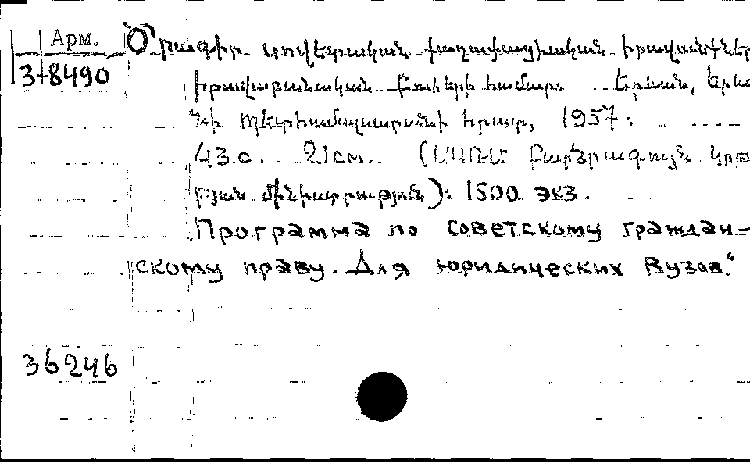 Арм.
3-8490
Ծրագիր սովետական քաղաքացիական իրավունքի
իրավաբանական բուհերի համար. Երևան, Երևա
նի պետհամալսարանի հրատ, 1957.
43 с. 21 см. (ՍՍՌՄ բարձրագույն կրթ
թյան մինիստրություն). 1500 экз.
Программа по советскому граждан-
скому праву. Для юридических вузов.
36246